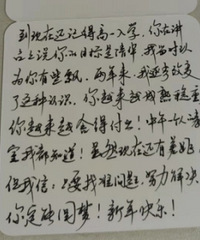 到现在还记得高一入学，你在讲
台上说你的目标是清华，我当时以
为你有些飘，两年来，我逐步改变
了这种认识，你越来越成熟稳重
你越来越舍得付出！
宝我都知道！虽然现在还有差距
但我信：只要找准问题，努力解决
你定能圆梦！新年快乐！